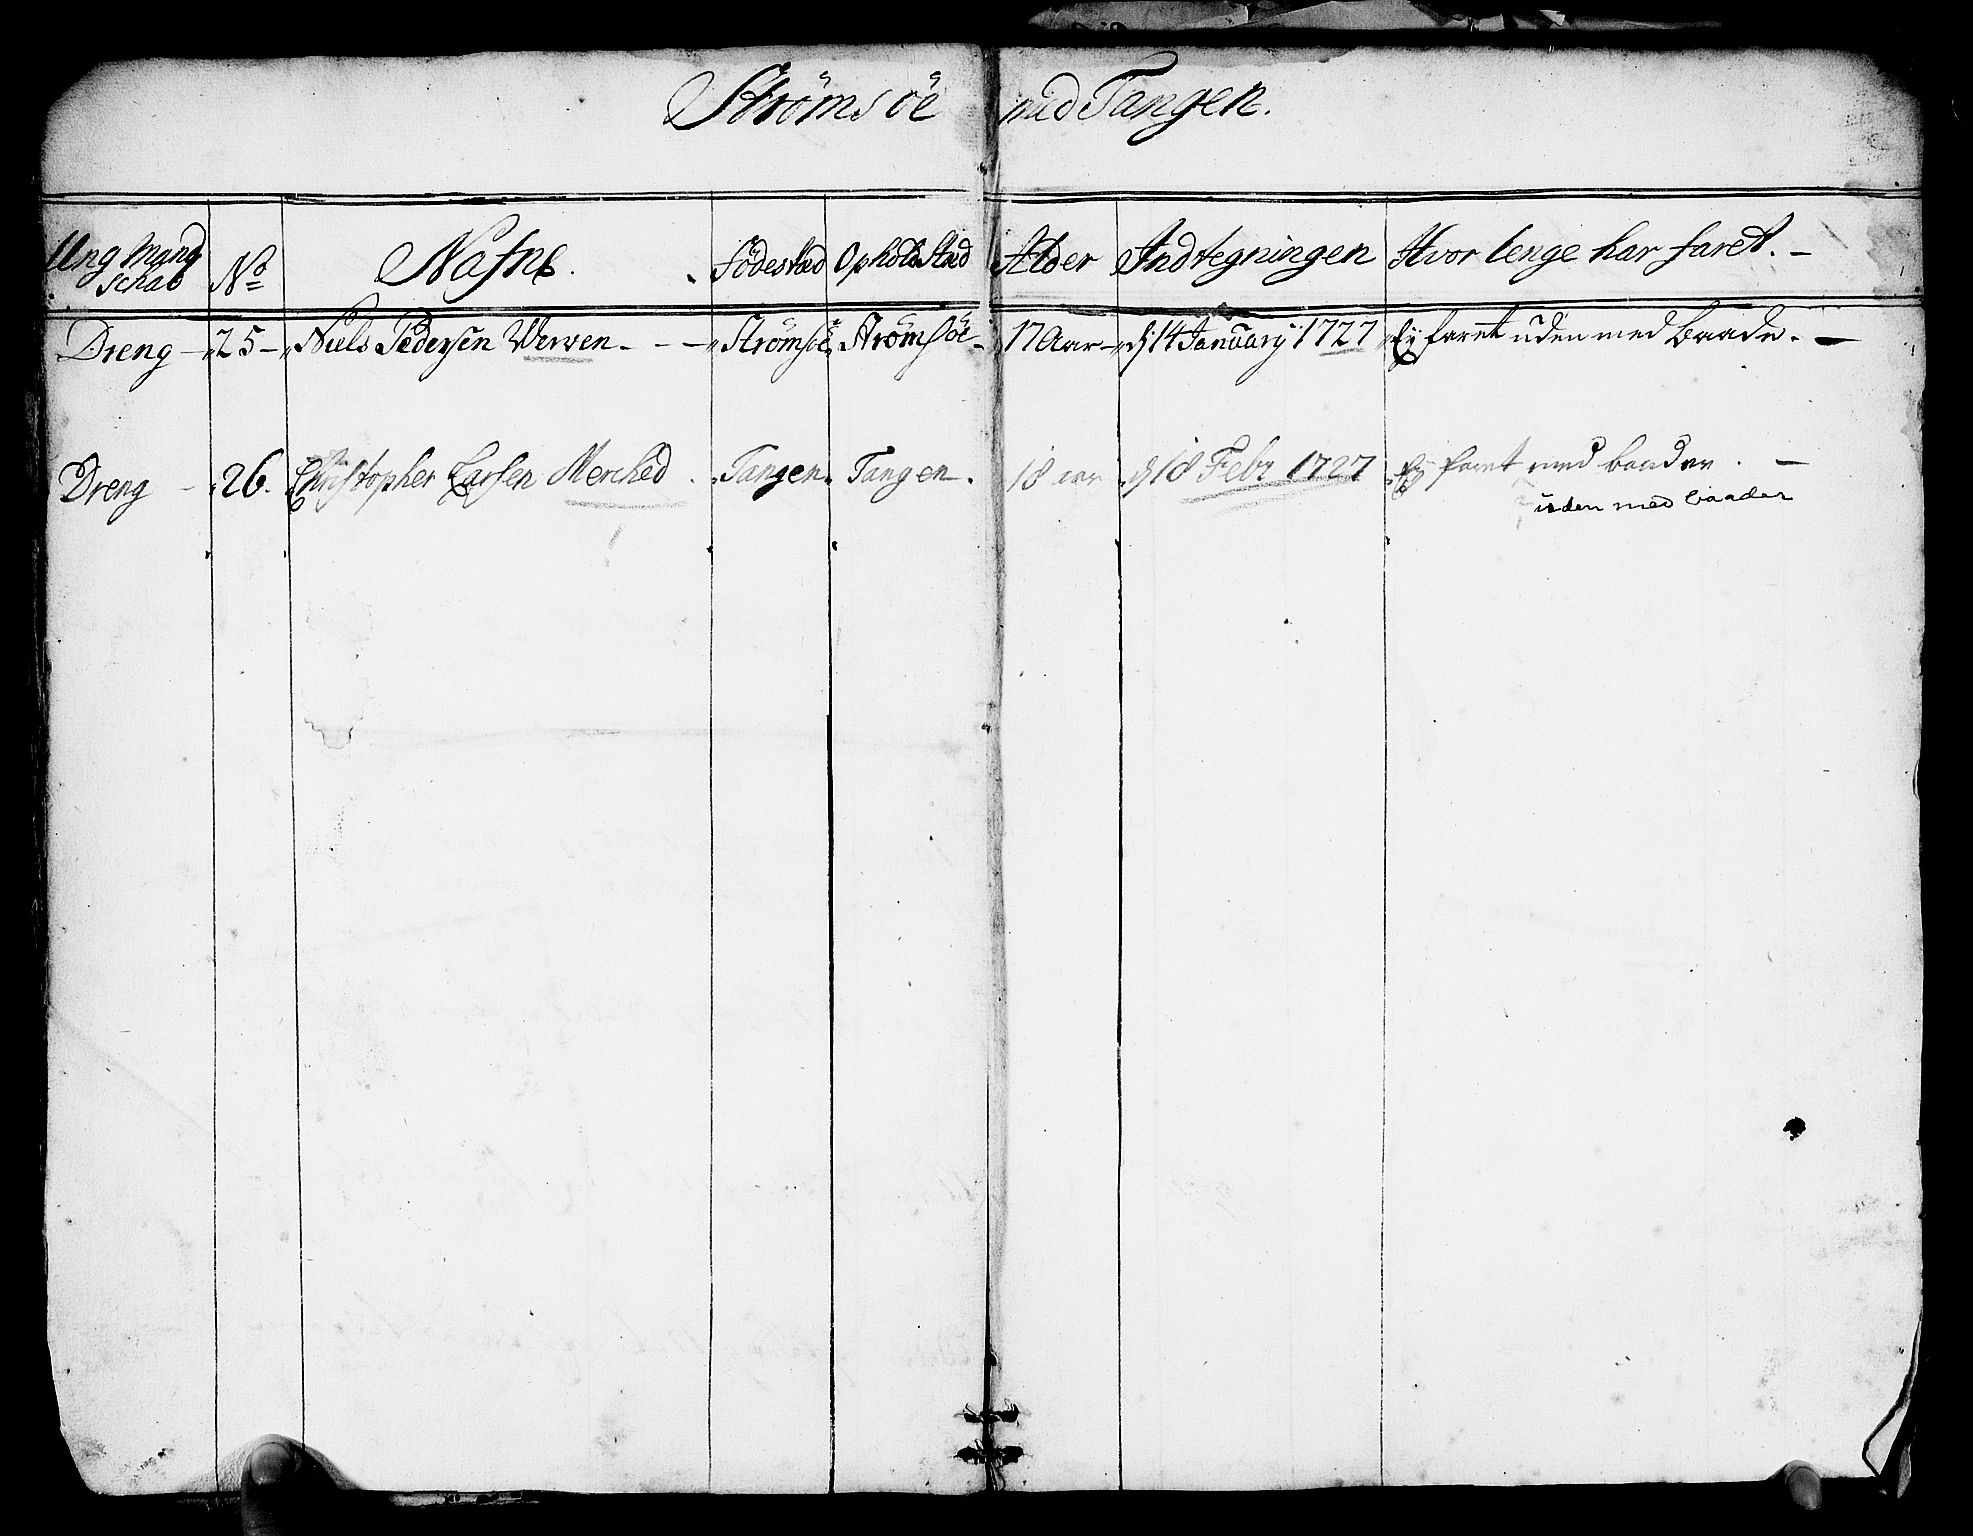 Strömsöe med Tangen.
Ung Mand schab No Nafne. Födestæd Opholds Stæd Alder Indtegningen Hvor lenge har faret. -
Dreng - 25 - Niels Pedersen Werven - - - Strömsöe Strömsöe - 17 Aar - d 14 January 1727 Ey faret uden med baade. -
Dreng - 26. Christopher Larsen Merched. Tangen. Tangen. 18 aar d 18 Febr 1727 Ey faret med baader. -
uden med baader